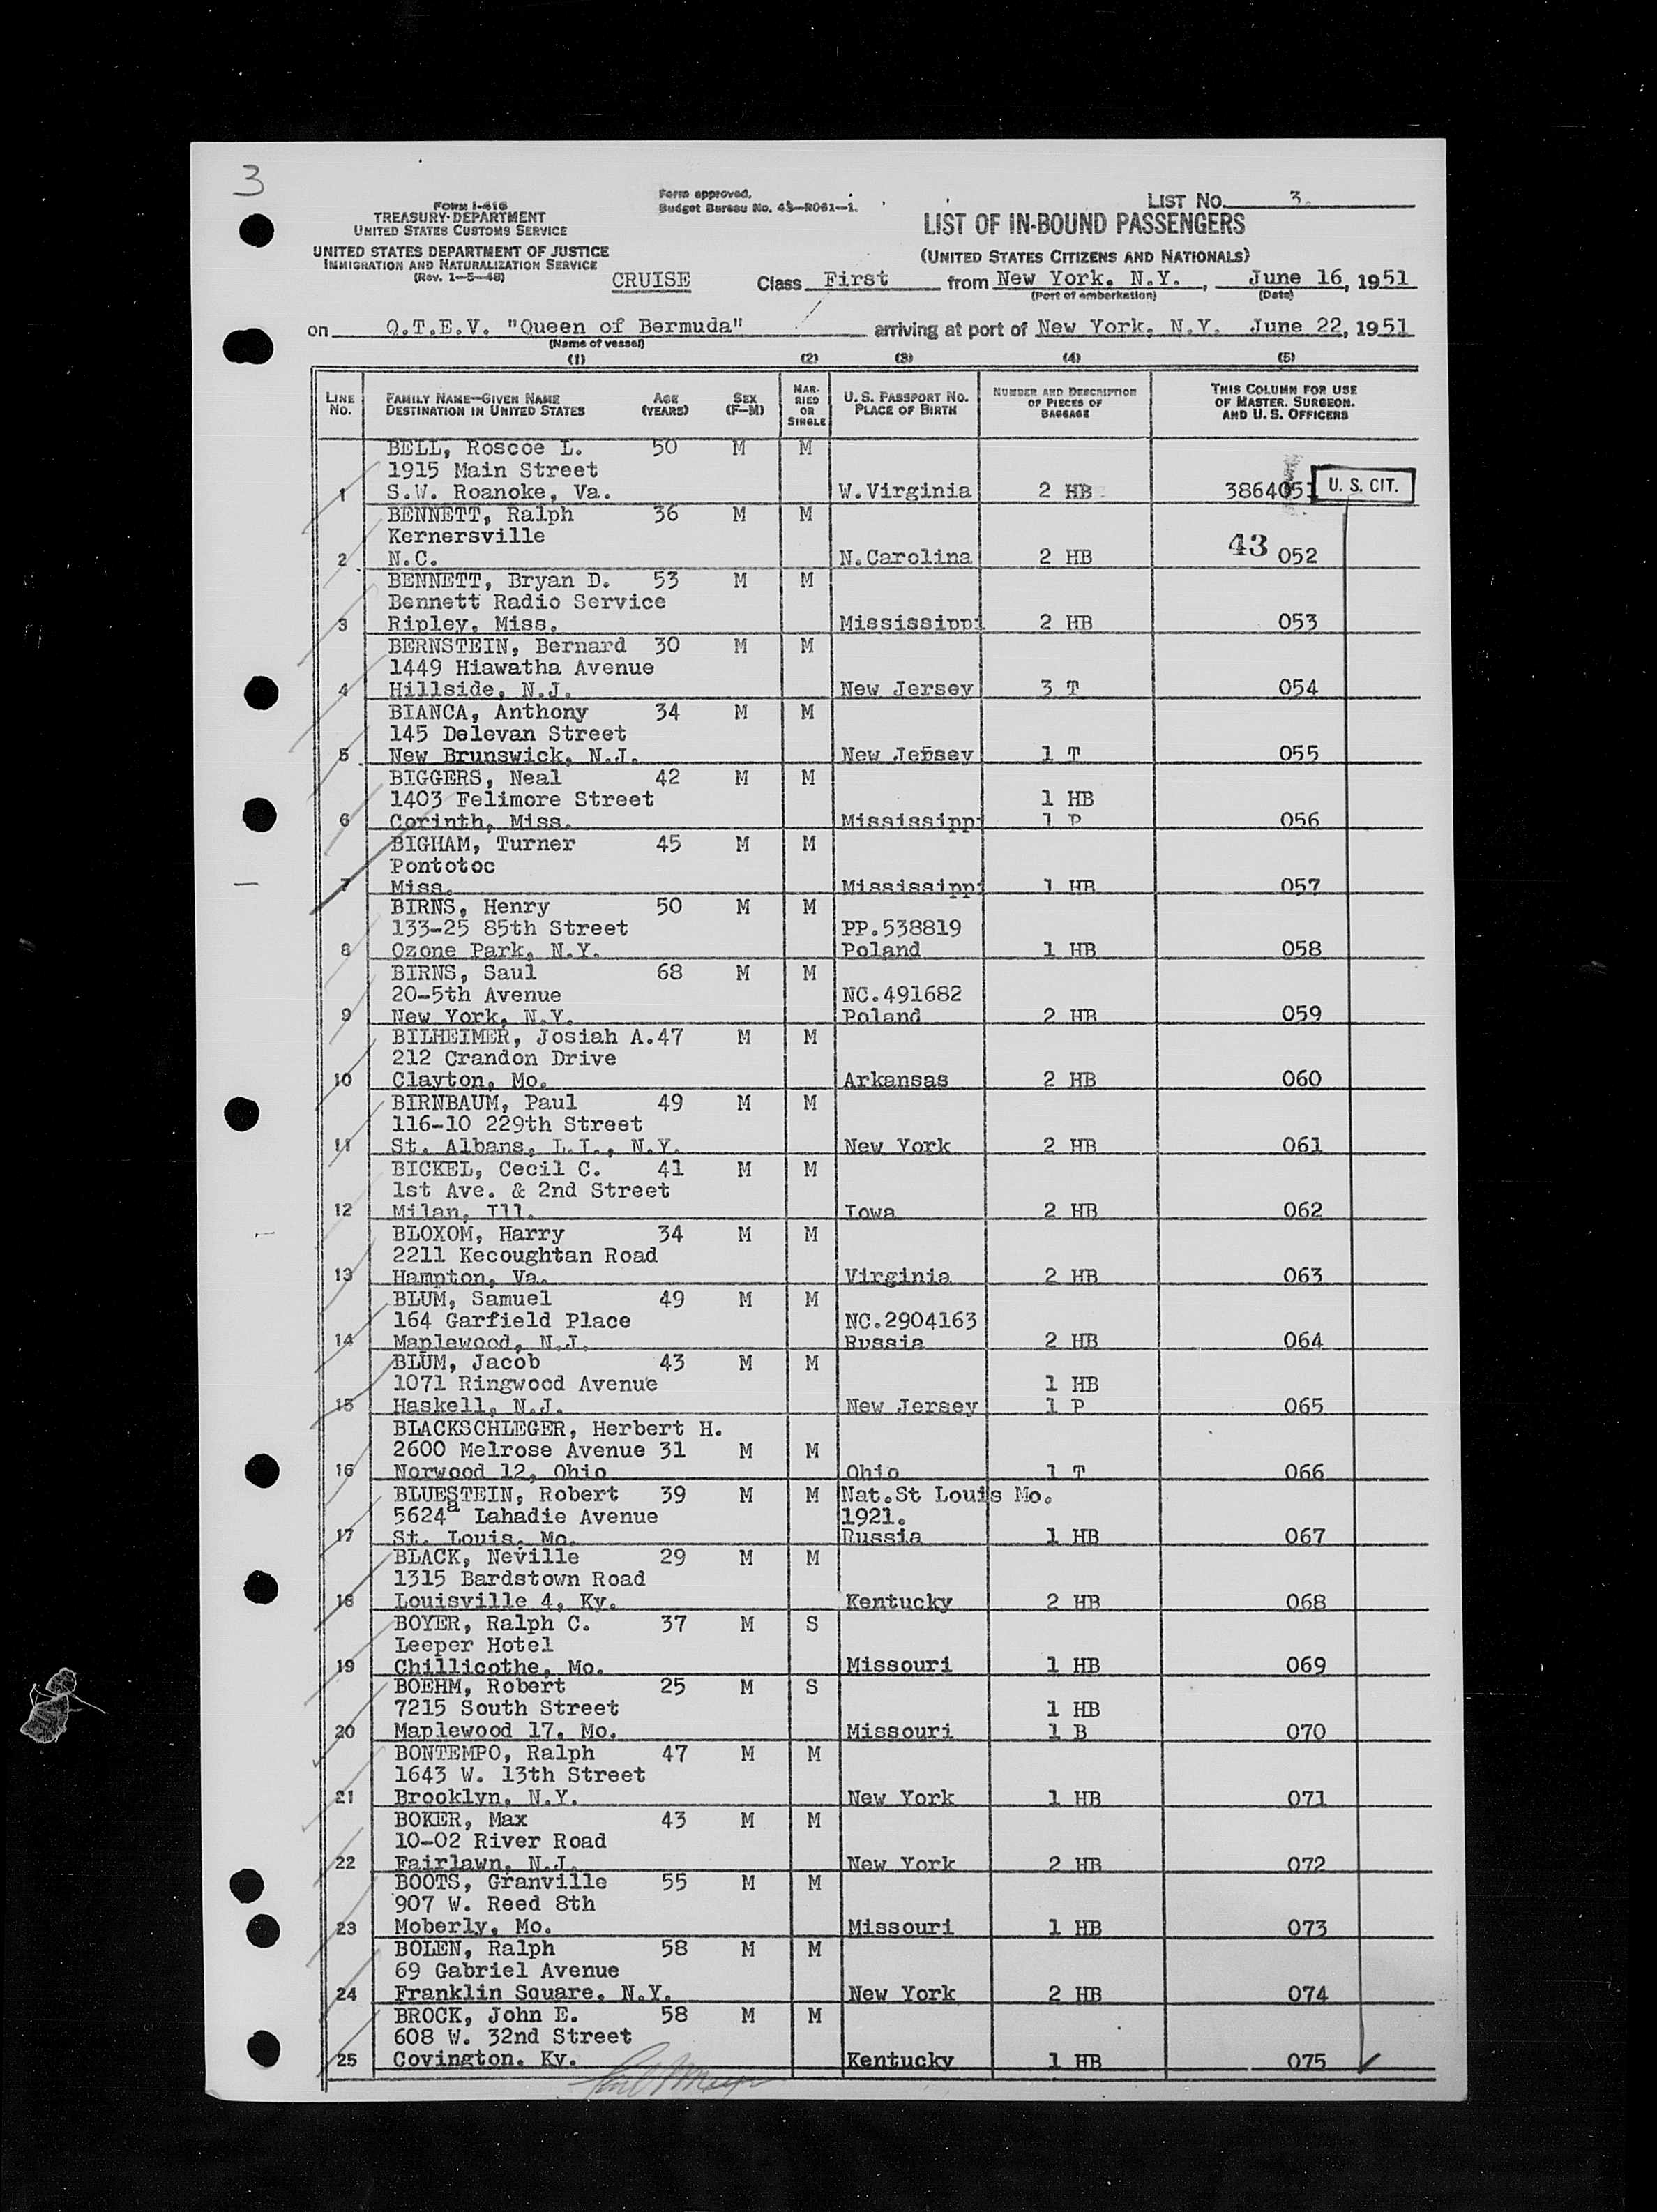 3
FORM I-416
TREASURY DEPARTMENT
UNITED STATES CUSTOMS SERVICE
UNITED STATES DEPARTMENT OF JUSTICE
IMMIGRATION AND NATURALIZATION SERVICE
(Rev. 1-5-48)
Form approved.
Budget Bureau No. 43-R061-1.
LIST NO. 3.
LIST OF IN-BOUND PASSENGERS
(UNITED STATES CITIZENS AND NATIONALS)
CRUISE Class First from New York, N.Y., June 16, 1951
(Port of embarkation) (Date)
on Q.T.E.V. "Queen of Bermuda" arriving at port of New York, N.Y. June 22, 1951
(Name of vessel)
(1) (2) (3) (4) (5)
LINE NO. FAMILY NAME—GIVEN NAME DESTINATION IN UNITED STATES AGE (YEARS) SEX (F—M) MARRIED OR SINGLE U. S. PASSPORT NO. PLACE OF BIRTH NUMBER AND DESCRIPTION OF PIECES OF BAGGAGE THIS COLUMN FOR USE OF MASTER, SURGEON, AND U. S. OFFICERS
BELL, Roscoe L. 50 M M
1915 Main Street
1 S.W. Roanoke, Va. W.Virginia 2 HB 3864051 U. S. CIT.
BENNETT, Ralph 36 M M
Kernersville
2 N.C. N.Carolina 2 HB 43 052
BENNETT, Bryan D. 53 M M
Bennett Radio Service
3 Ripley, Miss. Mississippi 2 HB 053
BERNSTEIN, Bernard 30 M M
1449 Hiawatha Avenue
4 Hillside, N.J. New Jersey 3 T 054
BIANCA, Anthony 34 M M
145 Delevan Street
5 New Brunswick, N.J. New Jersey 1 T 055
BIGGERS, Neal 42 M M
1403 Felimore Street 1 HB
6 Corinth, Miss. Mississippi 1 P 056
BIGHAM, Turner 45 M M
Pontotoc
7 Miss. Mississippi 1 HB 057
BIRNS, Henry 50 M M
133-25 85th Street PP.538819
8 Ozone Park, N.Y. Poland 1 HB 058
BIRNS, Saul 68 M M
20-5th Avenue NC.491682
9 New York, N.Y. Poland 2 HB 059
BILHEIMER, Josiah A. 47 M M
212 Crandon Drive
10 Clayton, Mo. Arkansas 2 HB 060
BIRNBAUM, Paul 49 M M
116-10 229th Street
11 St. Albans, L.I., N.Y. New York 2 HB 061
BICKEL, Cecil C. 41 M M
1st Ave. & 2nd Street
12 Milan, Ill. Iowa 2 HB 062
BLOXOM, Harry 34 M M
2211 Kecoughtan Road
13 Hampton, Va. Virginia 2 HB 063
BLUM, Samuel 49 M M
164 Garfield Place NC.2904163
14 Maplewood, N.J. Russia 2 HB 064
BLUM, Jacob 43 M M
1071 Ringwood Avenue 1 HB
15 Haskell, N.J. New Jersey 1 P 065
BLACKSCHLEGER, Herbert H.
2600 Melrose Avenue 31 M M
16 Norwood 12, Ohio Ohio 1 T 066
BLUESTEIN, Robert 39 M M Nat.St Louis Mo.
5624a Lahadie Avenue 1921.
17 St. Louis, Mo. Russia 1 HB 067
BLACK, Neville 29 M M
1315 Bardstown Road
18 Louisville 4, Ky. Kentucky 2 HB 068
BOYER, Ralph C. 37 M S
Leeper Hotel
19 Chillicothe, Mo. Missouri 1 HB 069
BOEHM, Robert 25 M S
7215 South Street 1 HB
20 Maplewood 17, Mo. Missouri 1 B 070
BONTEMPO, Ralph 47 M M
1643 W. 13th Street
21 Brooklyn, N.Y. New York 1 HB 071
BOKER, Max 43 M M
10-02 River Road
22 Fairlawn, N.J. New York 2 HB 072
BOOTS, Granville 55 M M
907 W. Reed 8th
23 Moberly, Mo. Missouri 1 HB 073
BOLEN, Ralph 58 M M
69 Gabriel Avenue
24 Franklin Square, N.Y. New York 2 HB 074
BROCK, John E. 58 M M
608 W. 32nd Street
25 Covington, Ky. Kentucky 1 HB 075